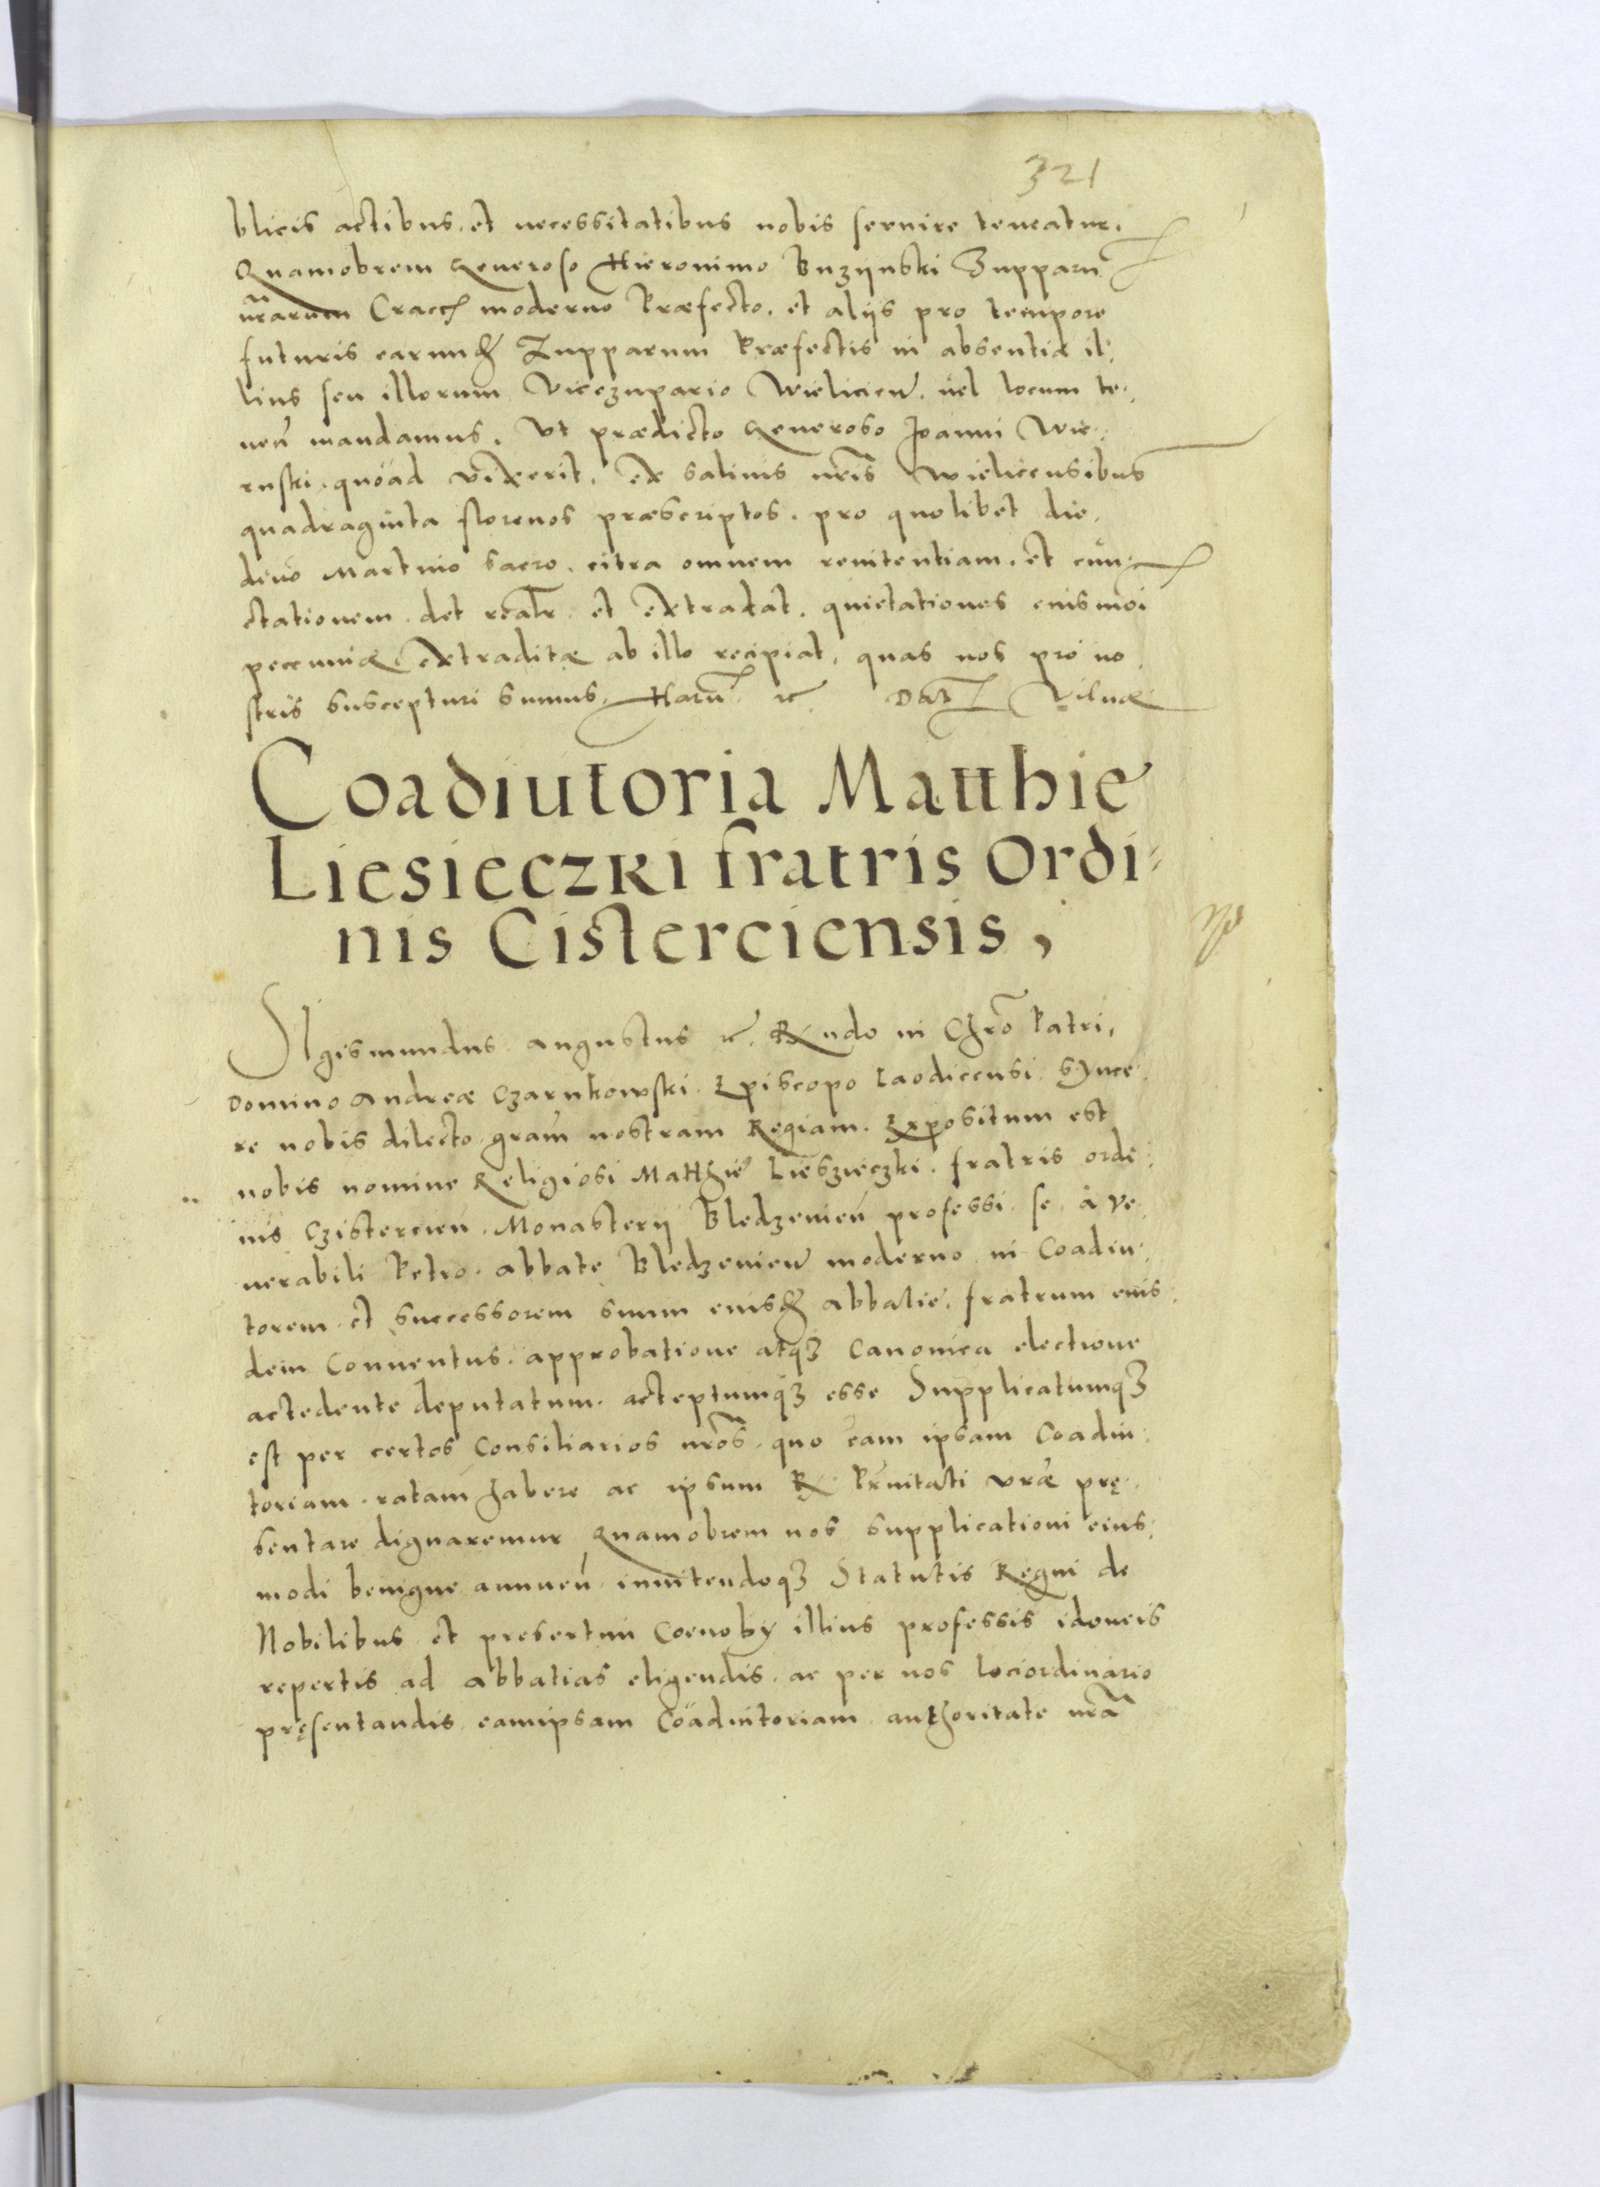 321
blicis actibus et necessitatibus nobis seruire teneatur.
Quamobrem Generoso Hieronimo Buzijnski Supparũ
nr̃arum Cracc̃ moderno Præfecto, et alijs pro tempore
futuris earund̃ Zupparum Præfectis in absentia il:
lius seu illorum Vicezupario Wielicieñ. uel locum te:
neñ mandamus. Vt prædicto Generoso Joanni Wie:
ruski quöad vixerit, ex salinis nr̃is Wieliccensibus
quadraginta florenos præscriptos, pro quolibet die
diuo Martino sacro, citra omnem renitentiam et cun:
ctationem det realr̃ et extradat, quietationes eiusmoi
pecuniæ extraditæ ab illo recipiat, quas nos pro no
stris suscepturi sumus. Harũ ꝛc Dat Vilnæ
Coadiutoria Matthie
Liesieczki fratris Ordi:
nis Cisterciensis,
Sigismundus augustus ꝛc. Rx̃ndo in Chr̃o Patri,
Domino Andreæ Czarnkowski Episcopo Laodicensi Synce
re nobis dilecto gram̃ nostram Regiam. Expositum est
nobis nomine Religiosi Matthie Lieszieczki fratris ordi:
nis Czistercieñ Monasterij Bledzenieñ professi se à Ve:
nerabili Petro abbate Bledzenieñ moderno in Coadiu:
torem et successorem suum eiusd̃ abbatie, fratrum eius:
dem Conuentus approbatione atqʒ Canonica electione
actedente deputatum acteptumqʒ esse Supplicatumqʒ
est per certos Consiliarios nr̃os, quo eam ipsam Coadiu:
toriam ratam habere ac ipsum R Prñitati vræ̃ prę:
sentare dignaremur Quamobrem nos supplicationi eius:
modi benigne annueñ innitendoqʒ Statutis Regni de
Nobilibus et presertim Coenobij illius professis idoneis
repertis ad abbatias eligendis ac per nos lociordinario
pręsentandis eamipsam Coädiutoriam authoritate nr̃a